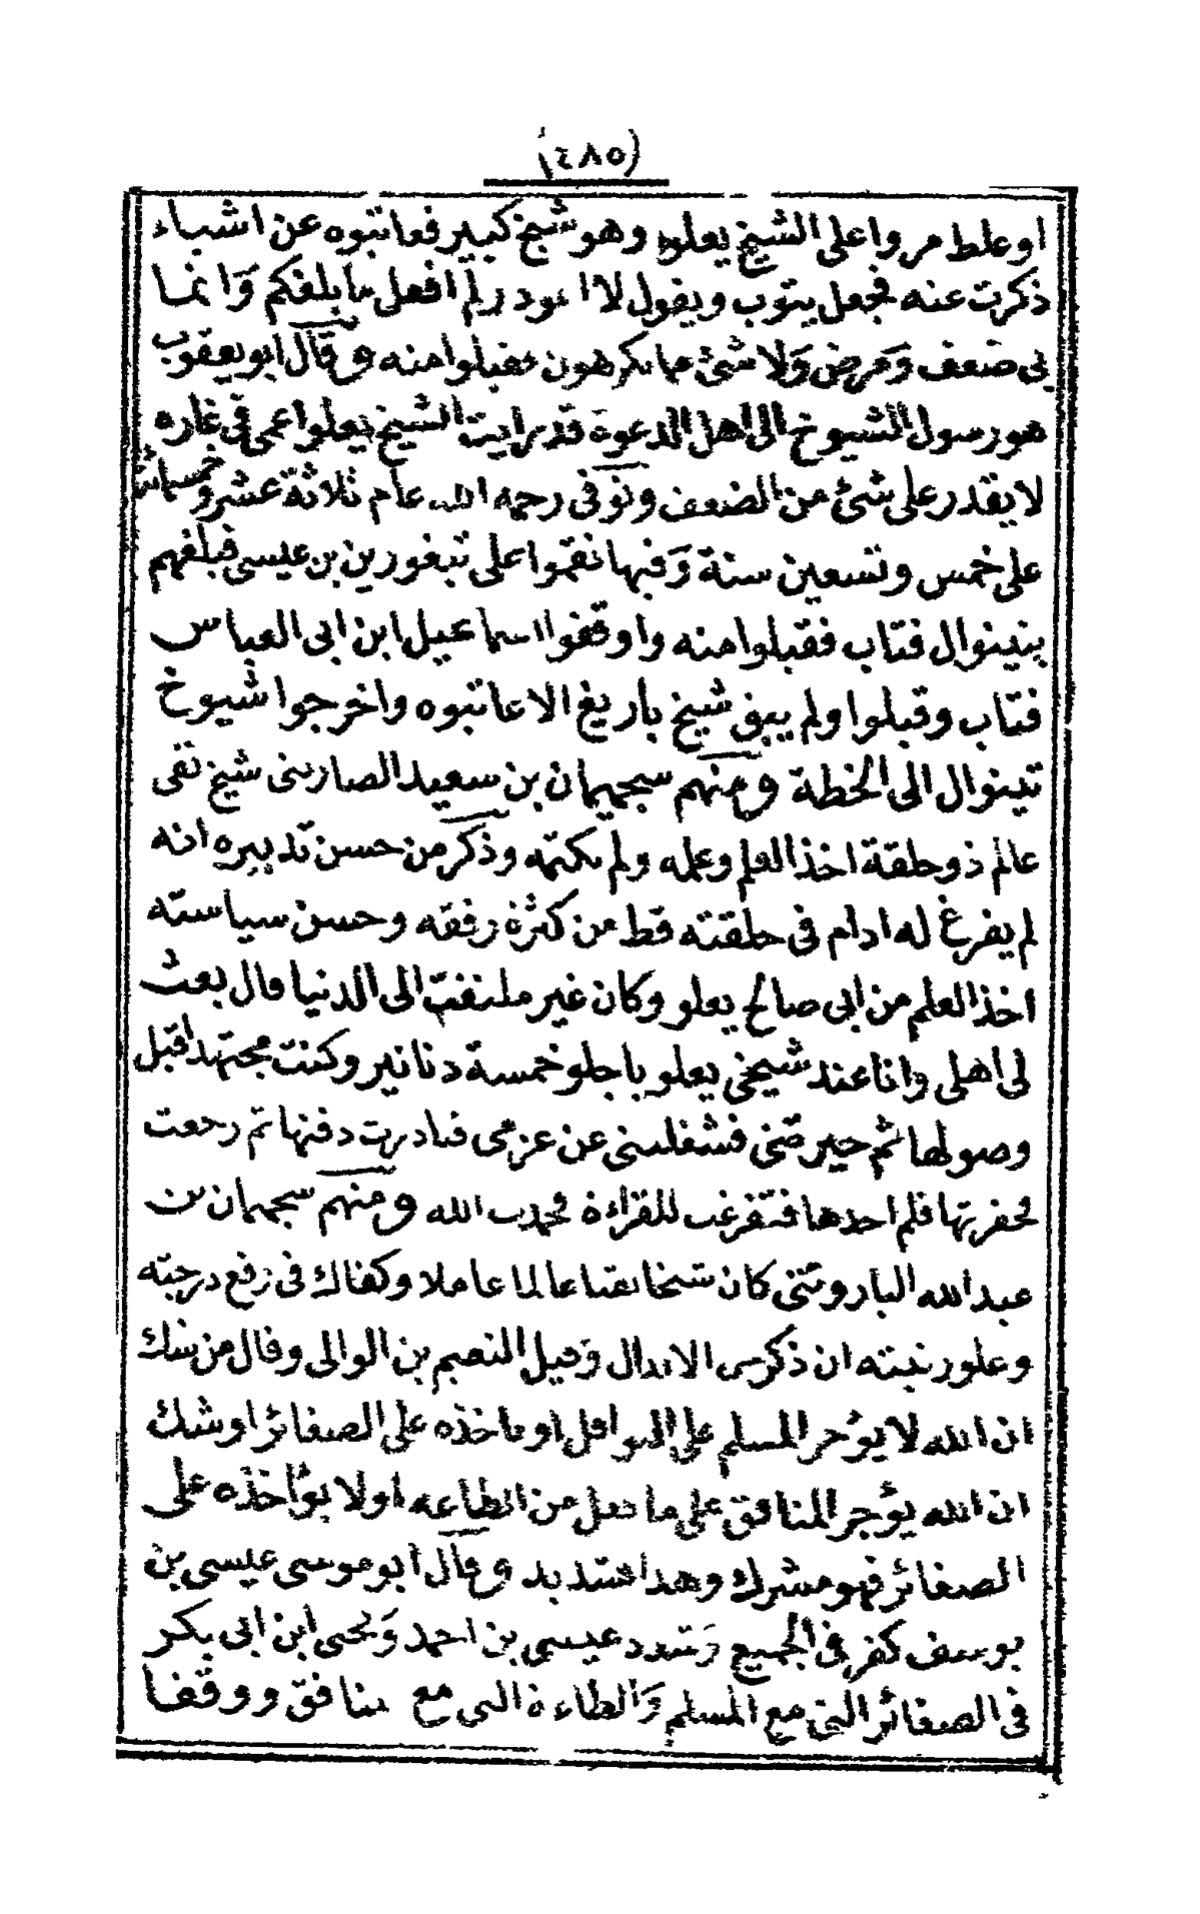 (٤٨٥)
اوغلط مروا على الشيخ يعلو وهو شيخ كبير فعاتبوه عن اشياء
ذكرت عنه فجعل يتوب ويقول لا اعود ولم افعل ما بلغكم وَانما
بى ضعف وَمرض وَلا شئ مما تكرهون فقبلوا منه وقال ابو يعقوب
هو رسول الشيوخ الى اهل الدعوة قد رايت الشيخ يعلوا عمى فى غاره
لا يقدر على شئ من الضعف وتوفى رحمه الله عام ثلاثة عشر وخمسمائة
على خمس وتسعين سنة وَفيها نقموا على تبغورين بن عيسى فبلغهم
بتينوال فتاب فقبلوا منه واوقفوا اسماعيل ابن ابى العباس
فتاب وقبلوا ولم يبق شيخ باريغ الا عاتبوه واخرجوا شيوخ
تينوال الى الخطة ومنهم سجميمان بن سعيد الصارينى شيخ تقى
عالم ذو حلقة اخذ العلم وعمله ولم يكتمه وذكر من حسن تدبيره انه
لم يفرغ له ادام فى حلقته قط من كثرة رفقه وحسن سياسته
اخذ العلم من ابى صالح يعلو وكان غير ملتفت الى الدنيا قال بعث
لى اهلى وانا عند شيخى يعلو باجلو خمسة دنانير وكنت مجتهدا قبل
وصولها ثم حيرتنى فشغلتنى عن عزمى فبادرت دفنها ثم رجعت
لحفرتها فلم اجدها فتفرغت للقراءة بحمد الله ومنهم سجميمان بن
عبد الله الباروتنى كان شيخا تقيا عالما عاملا وكفاك فى رفع درجته
وعلو رتبته ان ذكر من الابدال وَقيل المنعم بن الوالى وقال من شك
ان الله لا يوْجر المسلم على النوافل او ياخذه على الصغائر او شك
ان الله يوْجر المنافق على ما فعل من الطاعة او لا يوْاخذه على
الصغائر فهو مشرك وهذا شديد وقال ابو موسى عيسى بن
يوسف كفر فى الجميع وَشدد عيسى بن احمد وَيحيى ابن ابى بكر
فى الصغائر التى مع المسلم وَالطاعة التى مع منافق ووقفا